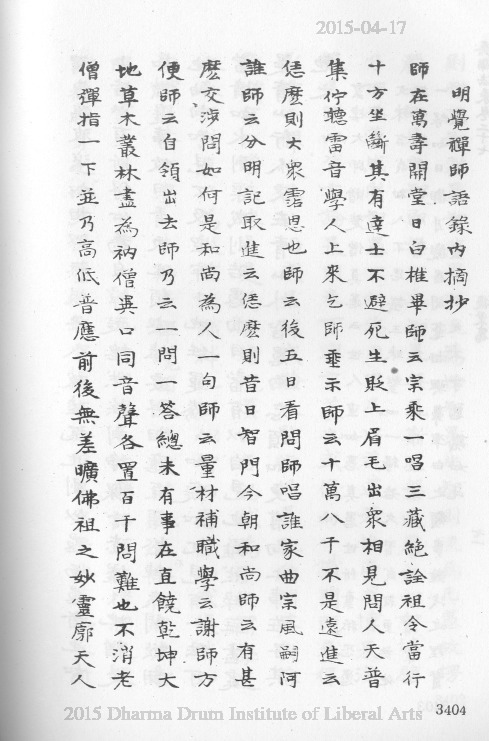 2015-04-17
明覺禪師語錄內摘抄
師在萬壽開堂日白椎畢師云宗乘一唱三藏絕詮祖令當行
十方坐斷其有達士不避死生貶上眉毛出衆相見問人天普
集佇聽雷音學人上來乞師垂示師云十萬八千不是遠進云
恁麽則大衆霑恩也師云後五日看問師唱誰家曲宗風嗣阿
誰師云分明記取進云恁麽則昔日智門今朝和尚師云有甚
麽交涉問如何是和尚為人一句師云量材補職學云謝師方
便師云自領出去師乃云一問一答總未有事在直饒乾坤大
地草木叢林盡為衲僧異口同音聲各置百千問難也不消老
僧彈指一下並乃高低普應前後無差曠佛祖之妙靈廓天人
3404
2015 Dharma Drum Institute of Liberal Arts